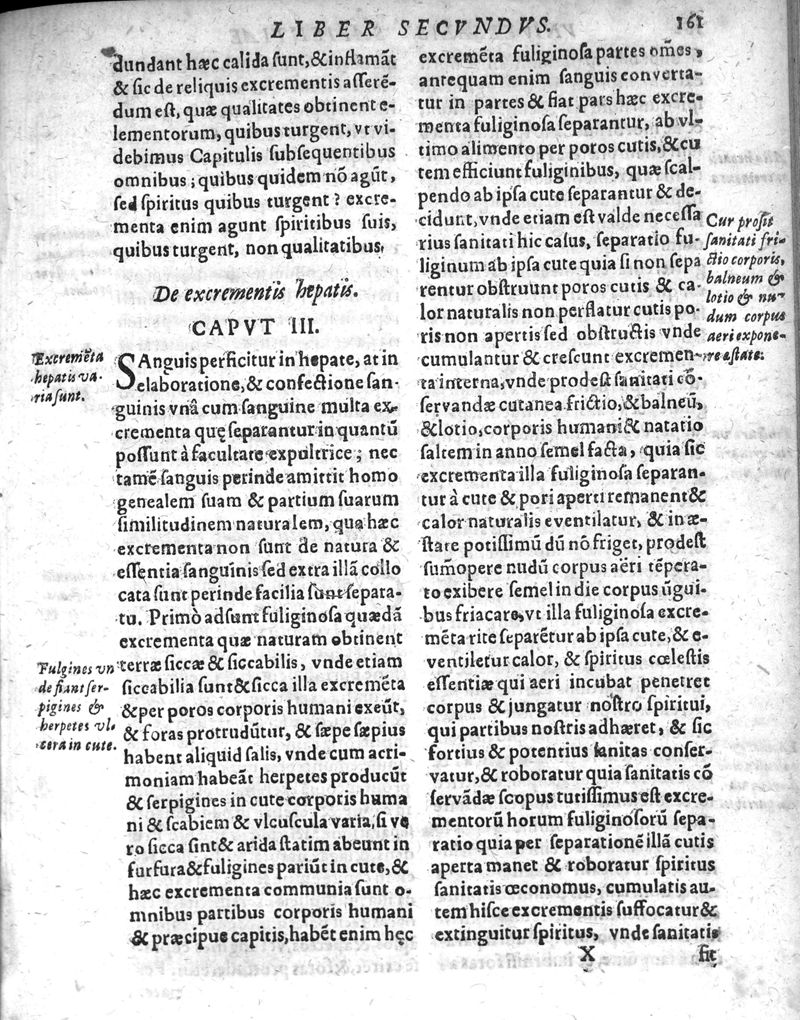 LIBER SECVNDVS. 161
dundant hæc calida sunt, & inflamãt
& sic de reliquis excrementis asserẽ-
dum est, quæ qualitates obtinent e-
lementorum, quibus turgent, vt vi-
debimus Capitulis subsequentibus
omnibus; quibus quidem nõ agũt,
sed spiritus quibus turgent? excre-
menta enim agunt spiritibus suis,
quibus turgent, non qualitatibus.
De excrementis hepatis.
CAPVT III.
Excremẽta
hepatis va-
ria sunt.
SAnguis perficitur in hepate, at in
elaboratione, & confectione san-
guinis vnâ cum sanguine multa ex-
crementa quę separantur in quantũ
possunt à facultate expultrice; nec
tamẽ sanguis perinde amittit homo
genealem suam & partium suarum
similitudinem naturalem, qua hæc
excrementa non sunt de natura &
essentia sanguinis sed extra illã collo
cata sunt perinde facilia sunt separa-
tu. Primò adsunt fuliginosa quædã
excrementa quæ naturam obtinent
terræ siccæ & siccabilis, vnde etiam
siccabilia sunt & sicca illa excremẽta
& per poros corporis humani exeũt,
& foras protrudũtur, & sæpe sæpius
habent aliquid salis, vnde cum acri-
moniam habeãt herpetes producũt
& serpigines in cute corporis huma
ni & scabiem & vlcuscula varia, si ve
ro sicca sint & arida statim abeunt in
furfura & fuligines pariũt in cute, &
hæc excrementa communia sunt o-
mnibus partibus corporis humani
& præcipue capitis, habẽt enim hęc
Fulgines vn
de fiant ser-
pigines &
herpetes vl-
cera in cute.
excremẽta fuliginosa partes om̃es,
antequam enim sanguis converta-
tur in partes & fiat pars hæc excre-
menta fuliginosa separantur, ab vl-
timo alimento per poros cutis, & cu
tem efficiunt fuliginibus, quæ scal-
pendo ab ipsa cute separantur & de-
cidunt, vnde etiam est valde necessa
rius sanitati hic casus, separatio fu-
liginum ab ipsa cute quia si non sepa
rentur obstruunt poros cutis & ca-
lor naturalis non perflatur cutis po-
ris non apertis sed obstructis vnde
cumulantur & crescunt excremen-
ta interna, vnde prodest sanitati cõ-
servandæ cutanea frictio, & balneũ,
& lotio, corporis humani & natatio
saltem in anno semel facta, quia sic
excrementa illa fuliginosa separan-
tur à cute & pori aperti remanent &
calor naturalis eventilatur, & in æ-
state potissimũ dũ nõ friget, prodest
sum̃opere nudũ corpus aëri tẽpera-
to exibere semel in die corpus ũgui-
bus friacare, vt illa fuliginosa excre-
mẽta rite separẽtur ab ipsa cute, & e-
ventiletur calor, & spiritus cœlestis
essentiæ qui aeri incubat penetret
corpus & jungatur nostro spiritui,
qui partibus nostris adhæret, & sic
fortius & potentius sanitas conser-
vatur, & roboratur quia sanitatis cõ
servãdæ scopus tutissimus est excre-
mentorũ horum fuliginosorũ sepa-
ratio quia per separationẽ illã cutis
aperta manet & roboratur spiritus
sanitatis œconomus, cumulatis au-
tem hisce excrementis suffocatur &
extinguitur spiritus, vnde sanitatis
Cur prosit
sanitati fri-
ctio corporis,
balneum &
lotio & nu-
dum corpus
aeri expone-
re æstate.
X fit